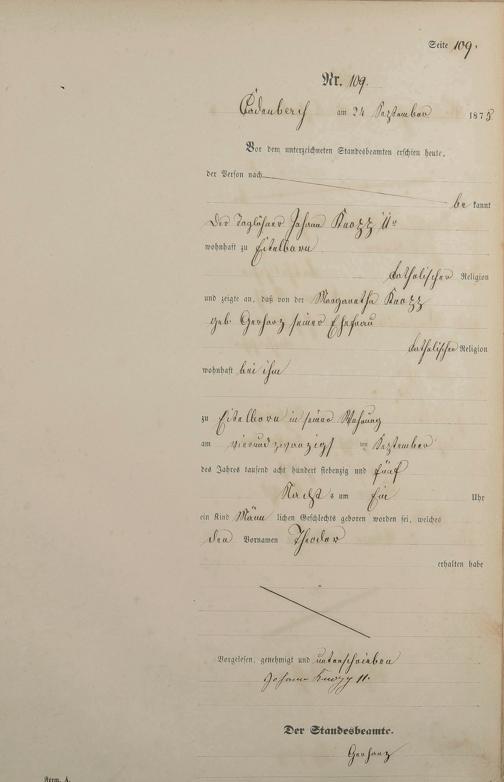 Seite 109.
Nr. 109.
Cadenbach am 24 September 1875
Vor dem unterzeichneten Standesbeamten erschien heute,
der Person nach
be kannt
Der Taglöhner Johann Knopp IIr
wohnhaft zu Eitelborn
katholischer Religion
und zeigte an, daß von der Margaretha Knopp
geb. Gerharz seiner Ehefrau
katholischer Religion
wohnhaft bei ihm
zu Eitelborn in seiner Wohnung
am vierundzwanzigs ten September
des Jahres tausend acht hundert siebenzig und fünf
Nachts um Ein Uhr
ein Kind Männ lichen Geschlechts geboren worden sei, welches
den Vornamen Theodor
erhalten habe
Vorgelesen, genehmigt und unterschrieben
Johann Knopp II.
Der Standesbeamte.
Gerharz
Form. A.